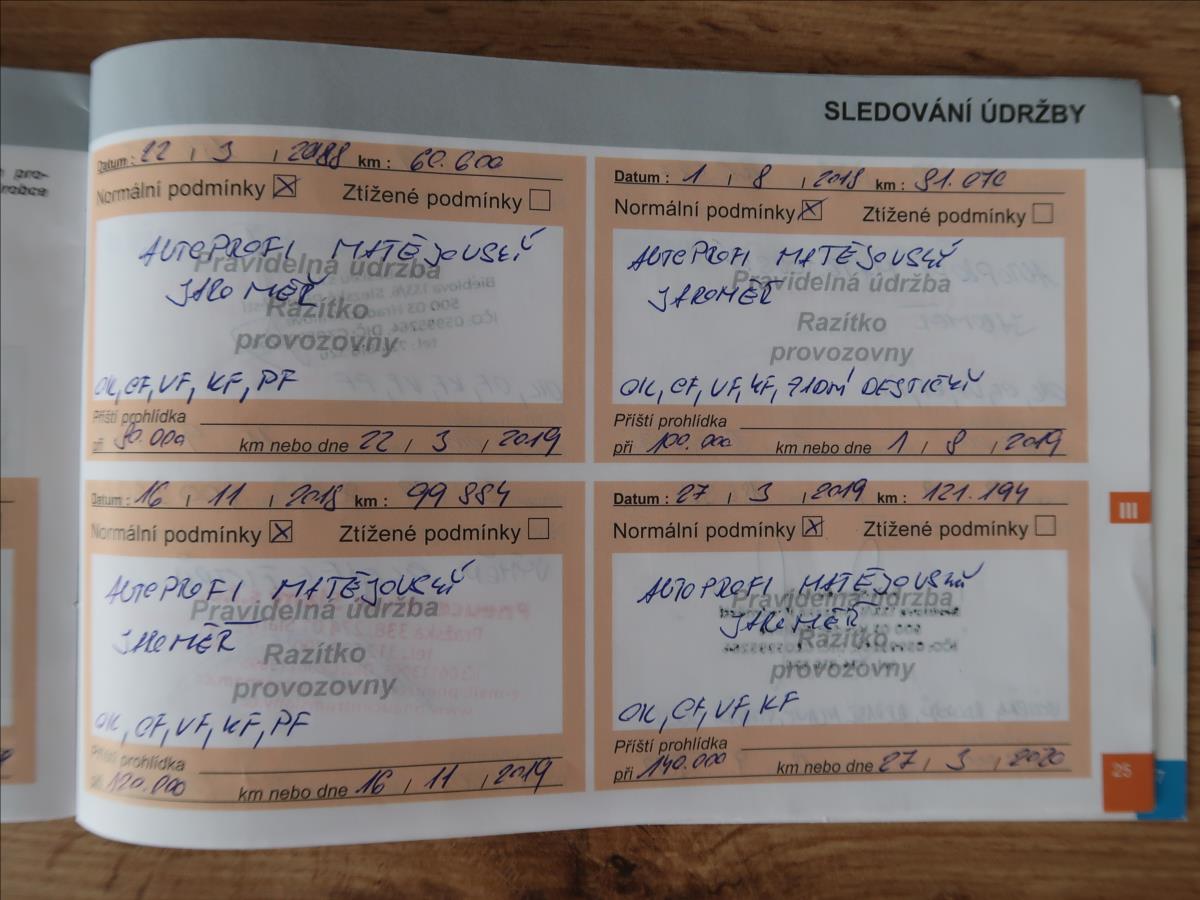 SLEDOVÁNÍ ÚDRŽBY
Datum : 22 / 3 / 2018 km : 60.600
Normální podmínky Ztížené podmínky
AUTOPROFI MATĚJOVSKÝ
Pravidelná údržba
JAROMĚŘ
Razítko
provozovny
OK, CF, VF, KF, PF
Příští prohlídka
při 80.000 km nebo dne 22 / 3 / 2019
Datum : 1 / 8 / 2018 km : 81.070
Normální podmínky Ztížené podmínky
AUTOPROFI MATĚJOVSKÝ
Pravidelná údržba
JAROMĚŘ
Razítko
provozovny
OK, CF, VF, KF, ZADNÍ DESTIČKY
Příští prohlídka
při 100.000 km nebo dne 1 / 8 / 2019
Datum : 16 / 11 / 2018 km : 99 884
Normální podmínky Ztížené podmínky
AUTOPROFI MATĚJOVSKÝ
Pravidelná údržba
JAROMĚŘ
Razítko
provozovny
OK, CF, VF, KF, PF
Příští prohlídka
při 120.000 km nebo dne 16 / 11 / 2019
Datum : 27 / 3 / 2019 km : 121.194
Normální podmínky Ztížené podmínky
AUTOPROFI MATĚJOVSKÝ
Pravidelná údržba
JAROMĚŘ
Razítko
provozovny
OK, CF, VF, KF
Příští prohlídka
při 140.000 km nebo dne 27 / 3 / 2020
III
25